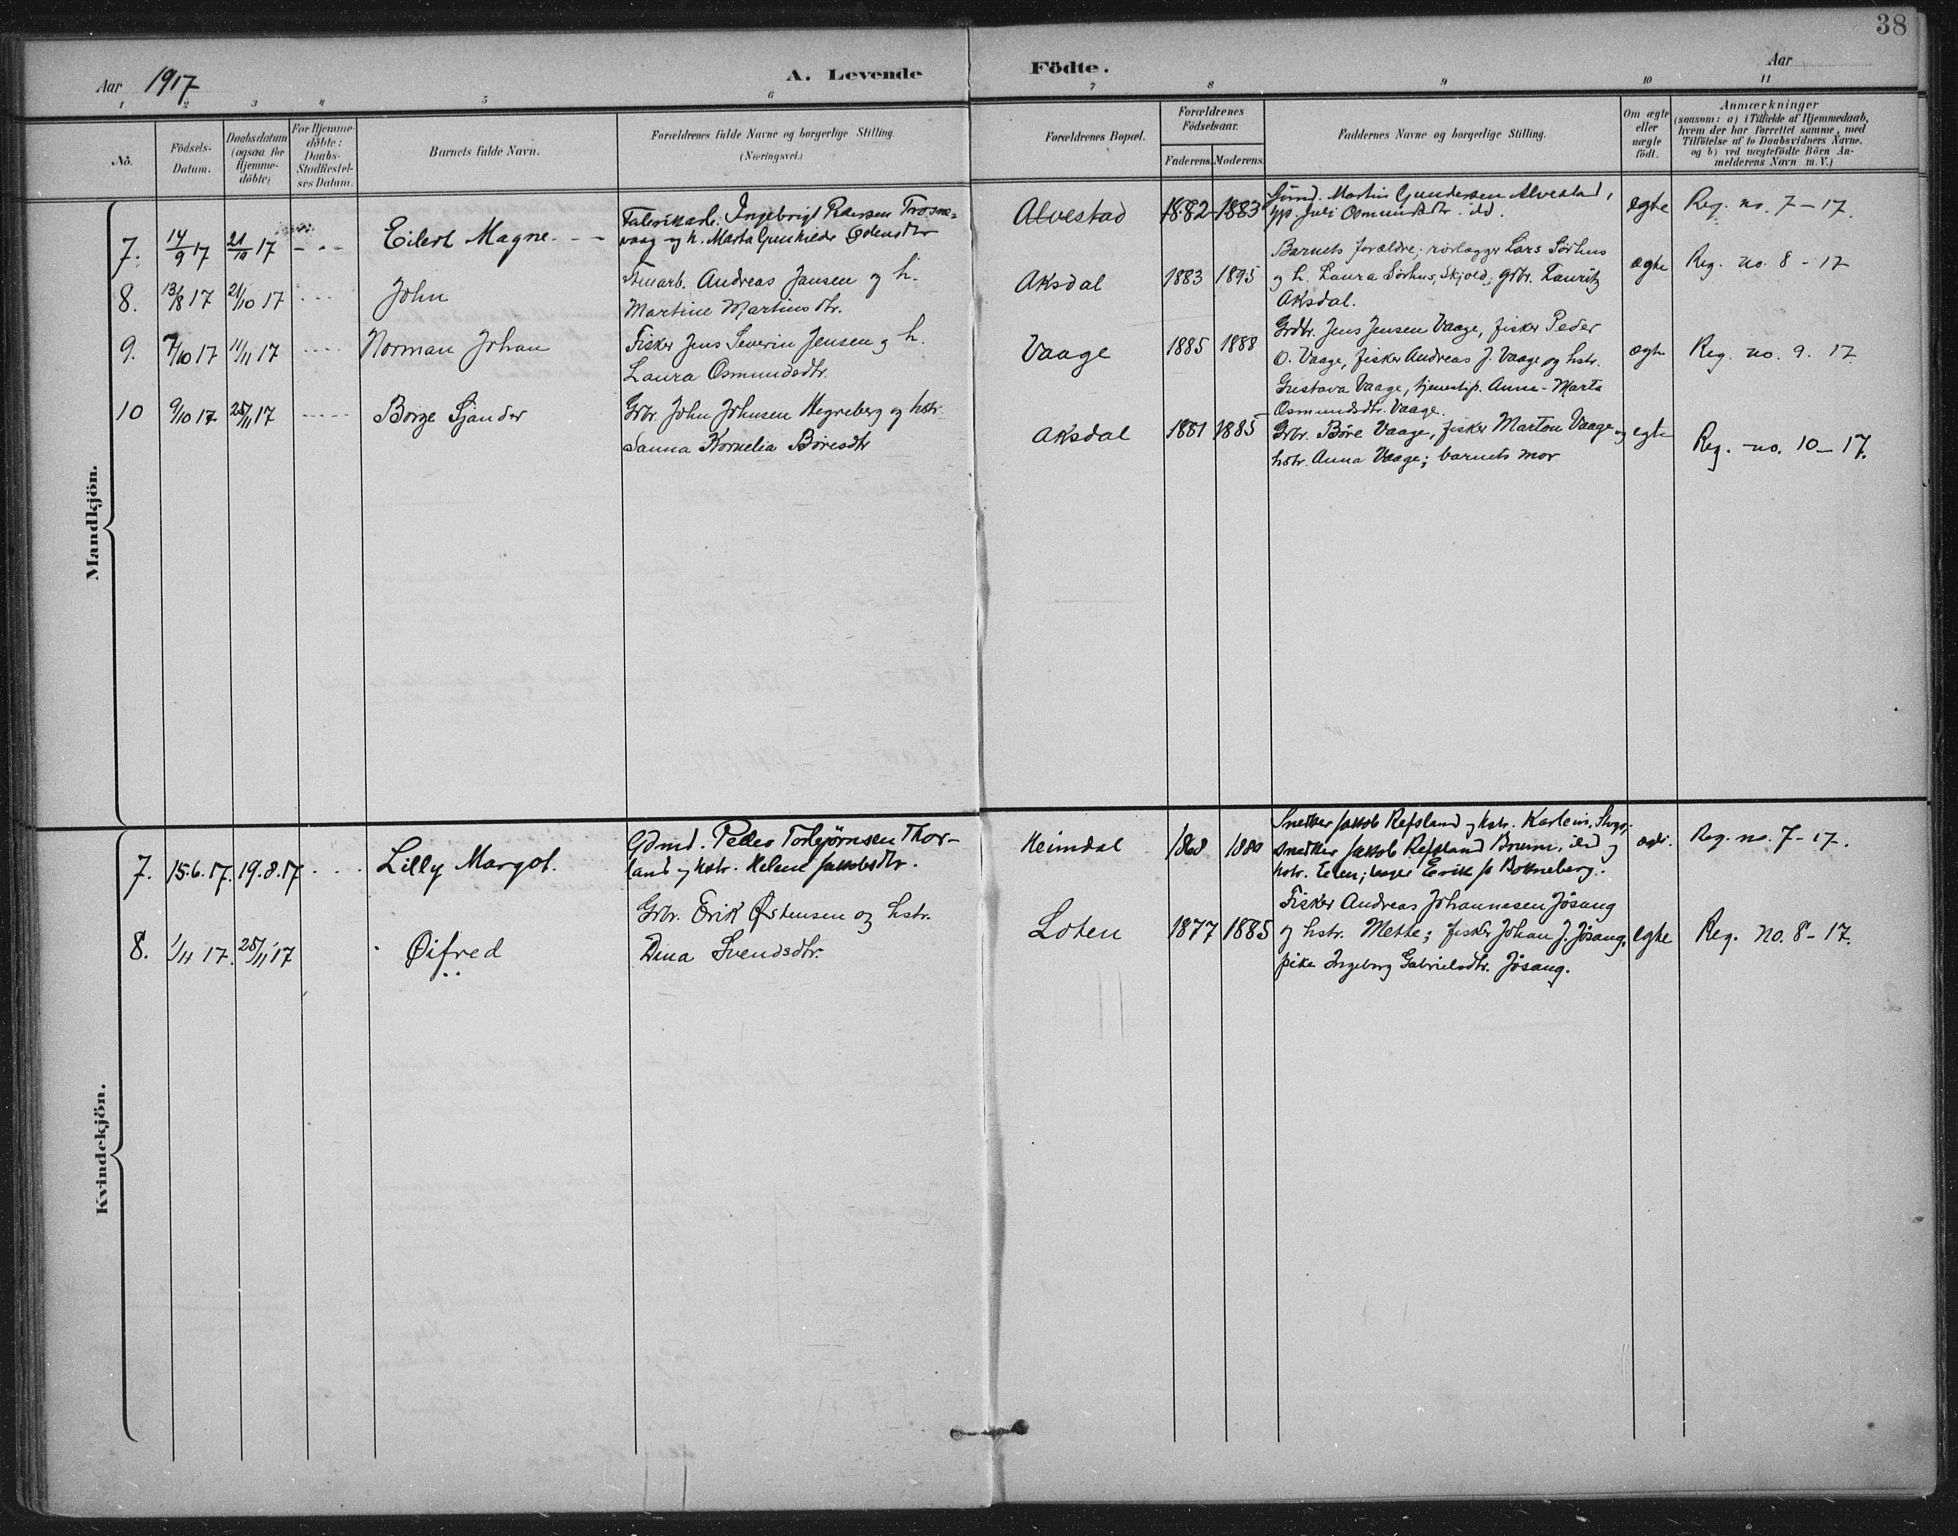 38
Aar 1917 A. Levende Födte. Aar
1 2 3 4 5 6 7 8 9 10 11
No.
Födsels-Datum.
Daabsdatum (ogsaa for Hjemme-döbte)
For Hjemme-döbte: Daabs-Stadfæstel-ses Datum.
Barnets fulde Navn.
Forældrenes fulde Navne og borgerlige Stilling.
(Næringsvei.)
Forældrenes Bopæl.
Forældrenes Födselsaar.
Faderens. Moderens.
Faddernes Navne og borgerlige Stilling.
Om ægte eller uægte födt.
Anmærkninger
(saasom: a) i Tilfælde af Hjemmedaab,
hvem der har forrettet samme, med
Tilföielse af to Daabsvidners Navne,
og b) ved uægtefödte Börn An-
melderens Navn m. V.)
Mandkjön.
7. 14/9 17 21/10 17 - - - Eilert Magne. - -
Fabrikarb. Ingebrigt
vaag og h. Marta Gunhilde
Alvestad 1882 1883
Martin Gundersen Alvestad,
Juli Osmundsdtr. ibd.
egte Reg. no. 7 - 17.
8. 13/8 17 21/10 17 - - - John
Andreas Jansen og h.
Martine Martinsdtr.
Aksdal 1883 1895
Barnets forældre; rørlægger Lars Sørhus
og h. Laura Sørhus, Skjold; grbr. Lauritz
Aksdal.
ægte Reg. no. 8 - 17
9. 7/10 17 11/11 17 - - - - Norman Johan
Fisker Jens Severin Jensen og h.
Laura Osmundsdtr.
Vaage 1885 1888
Grdbr. Jens Jensen Vaage, fisker Peder
O. Vaage, fisker Andreas J. Vaage og hstr.
Gustava Vaage, tjenestp. Anna-Marta
Osmundsdtr. Vaage.
ægte Reg. no. 9. 17
10 9/10 17 25/11 17 - - - - - Borge Sjander
Grbr. John Johnsen Hegreberg og hstr.
Sanna Kornelia Børesdtr
Aksdal 1881 1885
Grbr. Børe Vaage, fisker Marton Vaage og
hstr. Anna Vaage; barnets mor
egte Reg. no. 10 - 17.
Kvindekjön.
7. 15.6.17. 19.8.17 - - - Lilly Margot.
Gdmd. Peder Torbjørnsen Thor-
land og hstr. Helene Jakobsdtr.
Heimdal 1868 1880
Snekker Jakob Refsland og hstr.
snekker Jakob Refsland ibd og
hstr. Elen; Erik Bokneberg.
Reg. no. 7 - 17.
8. 1/11 17. 25/11 17 Øifred
Grbr. Erik Østensen og hstr.
Dina Svendsdtr.
Loten 1877 1885
Fisker Andreas Johannesen Jøsang
og hstr. Mette; fisker Johan J. Jøsang,
pike Ingeborg Gabrielsdtr. Jøsang.
egte Reg. No. 8 - 17.